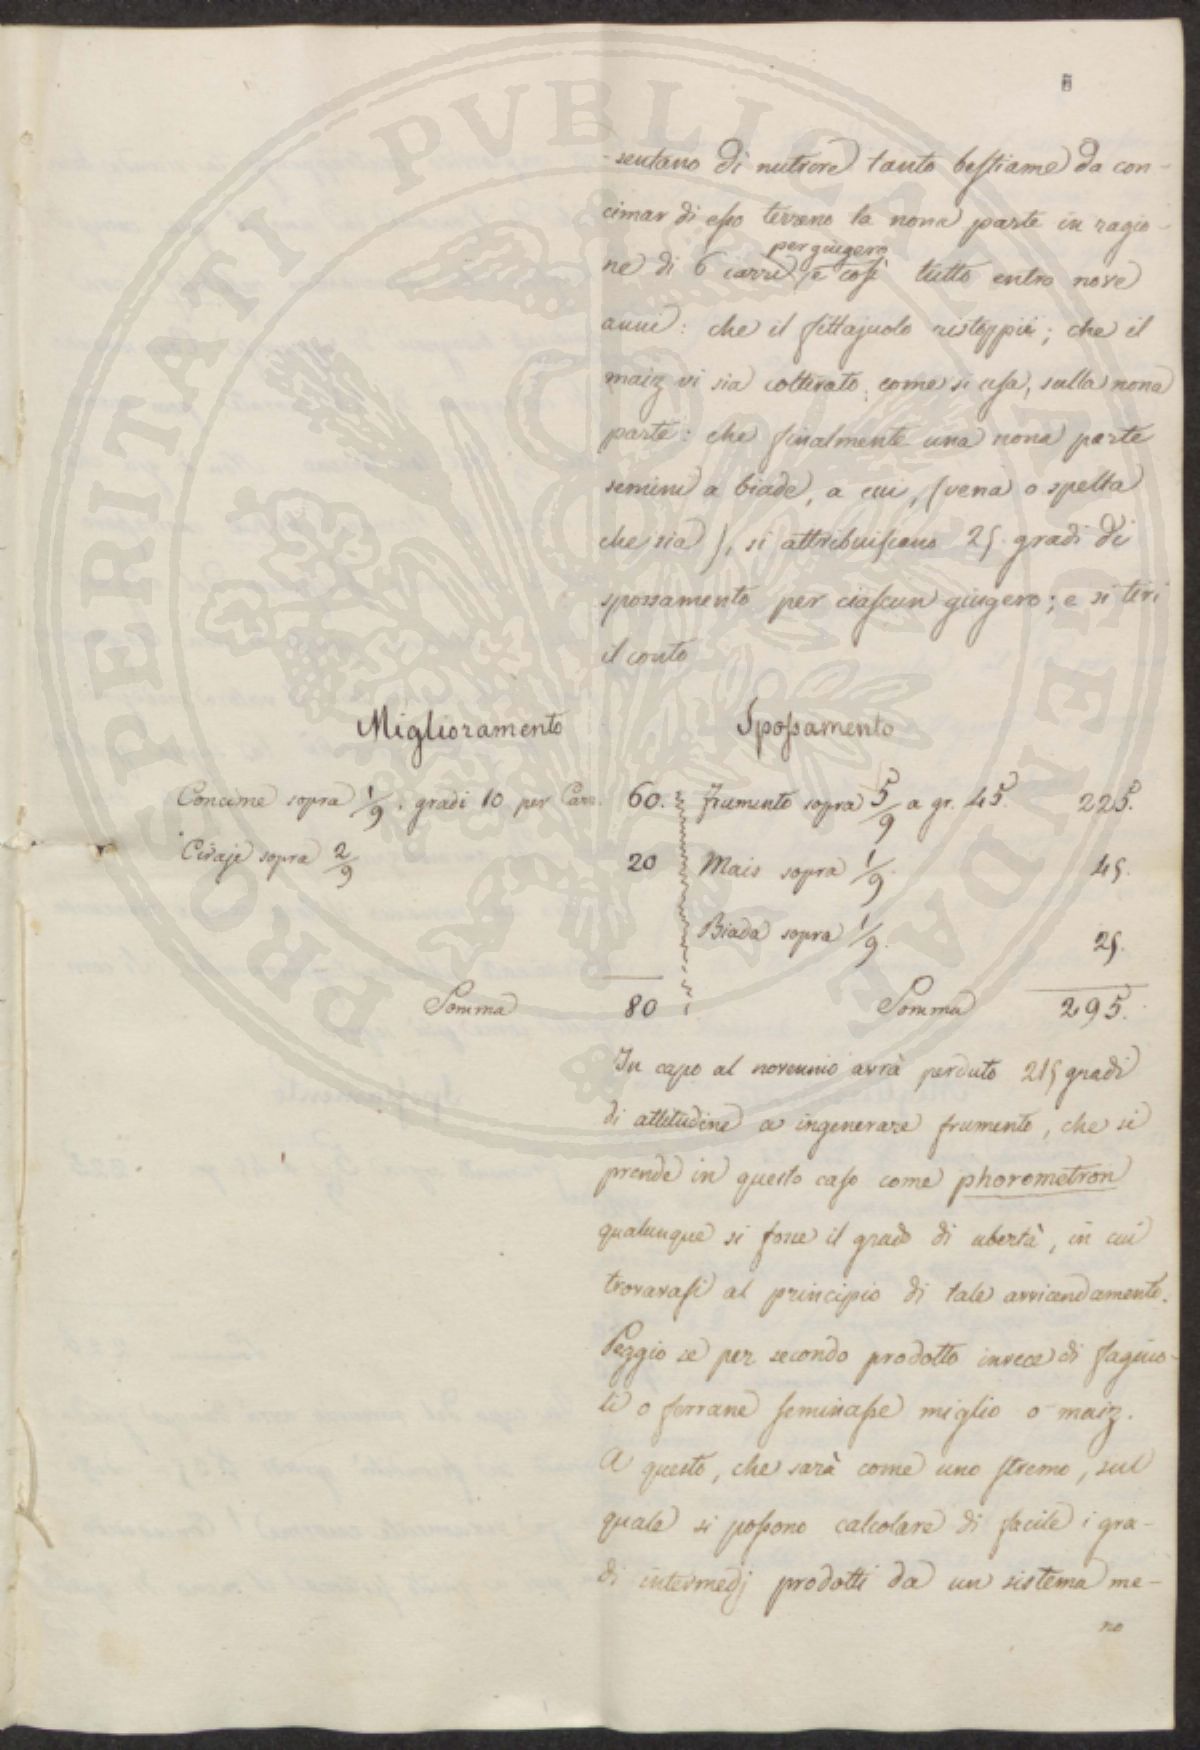 -sentano di nutrire tanto bestiame da con-
cimar di esso terreno la nona parte in ragio-
per giugero
ne di 6 carri, e così tutto entro nove
anni: che il fittajuolo ristoppii; che il
maiz vi sia coltivato, come si usa, sulla nona
parte: che finalmente una nona parte
semini a biade, a cui, (vena o spelta
che sia), si attribuiscano 25. gradi di
spossamento per ciascun giugero; e si tiri
il conto
Miglioramento Spossamento
Concime sopra 1/9. gradi 10 per Carr. 60. frumento sopra 5/9 a gr. 45. 225.
Civaje sopra 2/9 20 Mais sopra 1/9. 45.
Biada sopra 1/9. 25.
Somma 80 Somma 295.
In capo al novennio avrà perduto 215 gradi
di attitudine a ingenerare frumento, che si
prende in questo caso come phorometron
qualunque si fosse il grado di ubertà, in cui
trovavasi al principio di tale avvicendamento.
Peggio se per secondo prodotto invece di fagiuo-
li o ferrane seminasse miglio o maiz.
A questo, che sarà come uno stremo, sul
quale si possono calcolare di facile i gra-
di intermedj prodotti da un sistema me-
no
PROSPERITATI PVBLICAE AVGENDAE